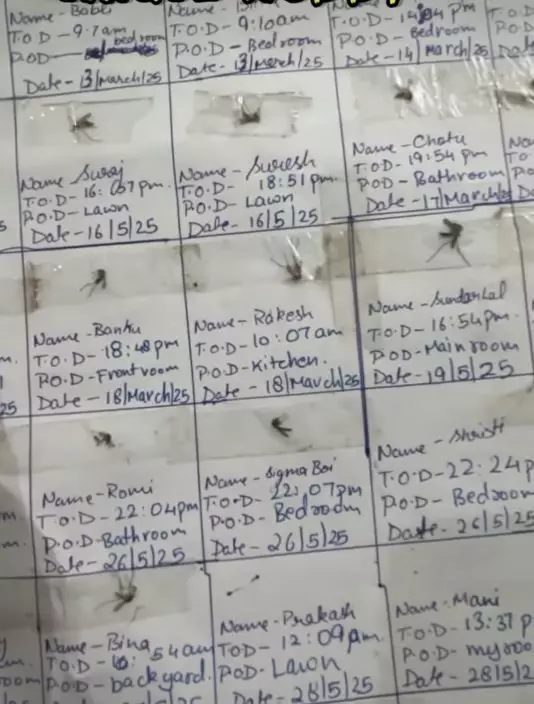 Name - Babli
T.O.D - 9:7am
P.O.D - bedroom
Date - 13/March/25
T.O.D - 9:10am
P.O.D - Bedroom
Date - 13/March/25
P.O.D - Bedroom
Date - 14/March/25
Name - Suraj
T.O.D - 16:07pm.
P.O.D - Lawn
Date - 16/5/25
Name - Suresh
T.O.D - 18:51pm
P.O.D - Lawn
Date - 16/5/25
Name - Chotu
T.O.D - 19:54pm
P.O.D - Bathroom
Date - 17/March/25
Name - Banku
T.O.D - 18:48pm
P.O.D - Frontroom
Date - 18/March/25
Name - Rakesh
T.O.D - 10:07am
P.O.D - Kitchen.
Date - 18/March/25
Name - Sundarlal
T.O.D - 16:54pm.
P.O.D - Mainroom
Date - 19/5/25
Name - Romi
T.O.D - 22:04pm
P.O.D - Bathroom
Date - 26/5/25
Name - Sigma Boi
T.O.D - 22:07pm
P.O.D - Bedroom
Date - 26/5/25
Name - Shristi
T.O.D - 22:24p
P.O.D - Bedroom
Date - 26/5/25
Name - Bina
T.O.D - 10:54am
P.O.D - backyard.
Name - Prakash
TOD - 12:09Am.
P.O.D - Lawn
Date - 28/5/25
Name - Mani
T.O.D - 13:37p
P.O.D - myroo
Date - 28/5/2